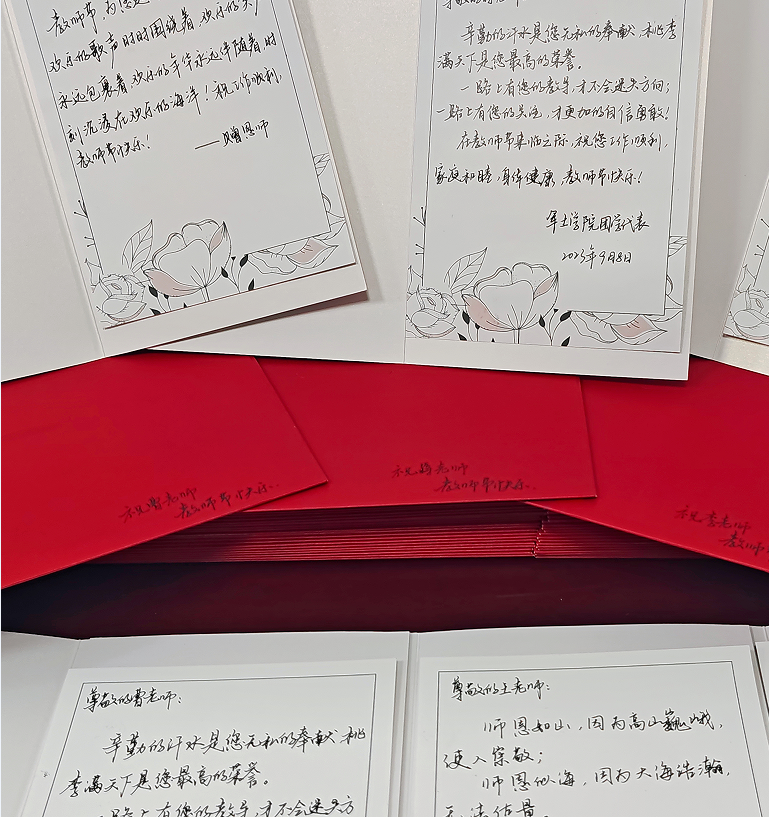 教师节,为您送
欢乐的歌声时时围绕着,欢乐的
永远包裹着,欢乐的年华永远伴随着时
刻沉浸在欢乐的海洋!祝工作顺利,
教师节快乐!
——赠恩师
辛勤的汗水是您无私的奉献,桃李
满天下是您最高的荣誉。
一路上有您的教导,才不会迷失方向;
一路上有您的关注,才更加的自信勇敢!
在教师节来临之际,祝您工作顺利,
家庭和睦,身体健康,教师节快乐!
学院团学代表
2023年9月8日
祝曾老师
教师节快乐..
祝 老师
教师节快乐..
祝李老师
教师
尊敬的曹老师:
辛勤的汗水是您无私的奉献,桃
李满天下是您最高的荣誉。
一路上有您的教导,才不会迷失方
尊敬的王老师:
师恩如山,因为高山巍峨,
使人崇敬;
师恩似海,因为大海浩瀚,
无法估量。